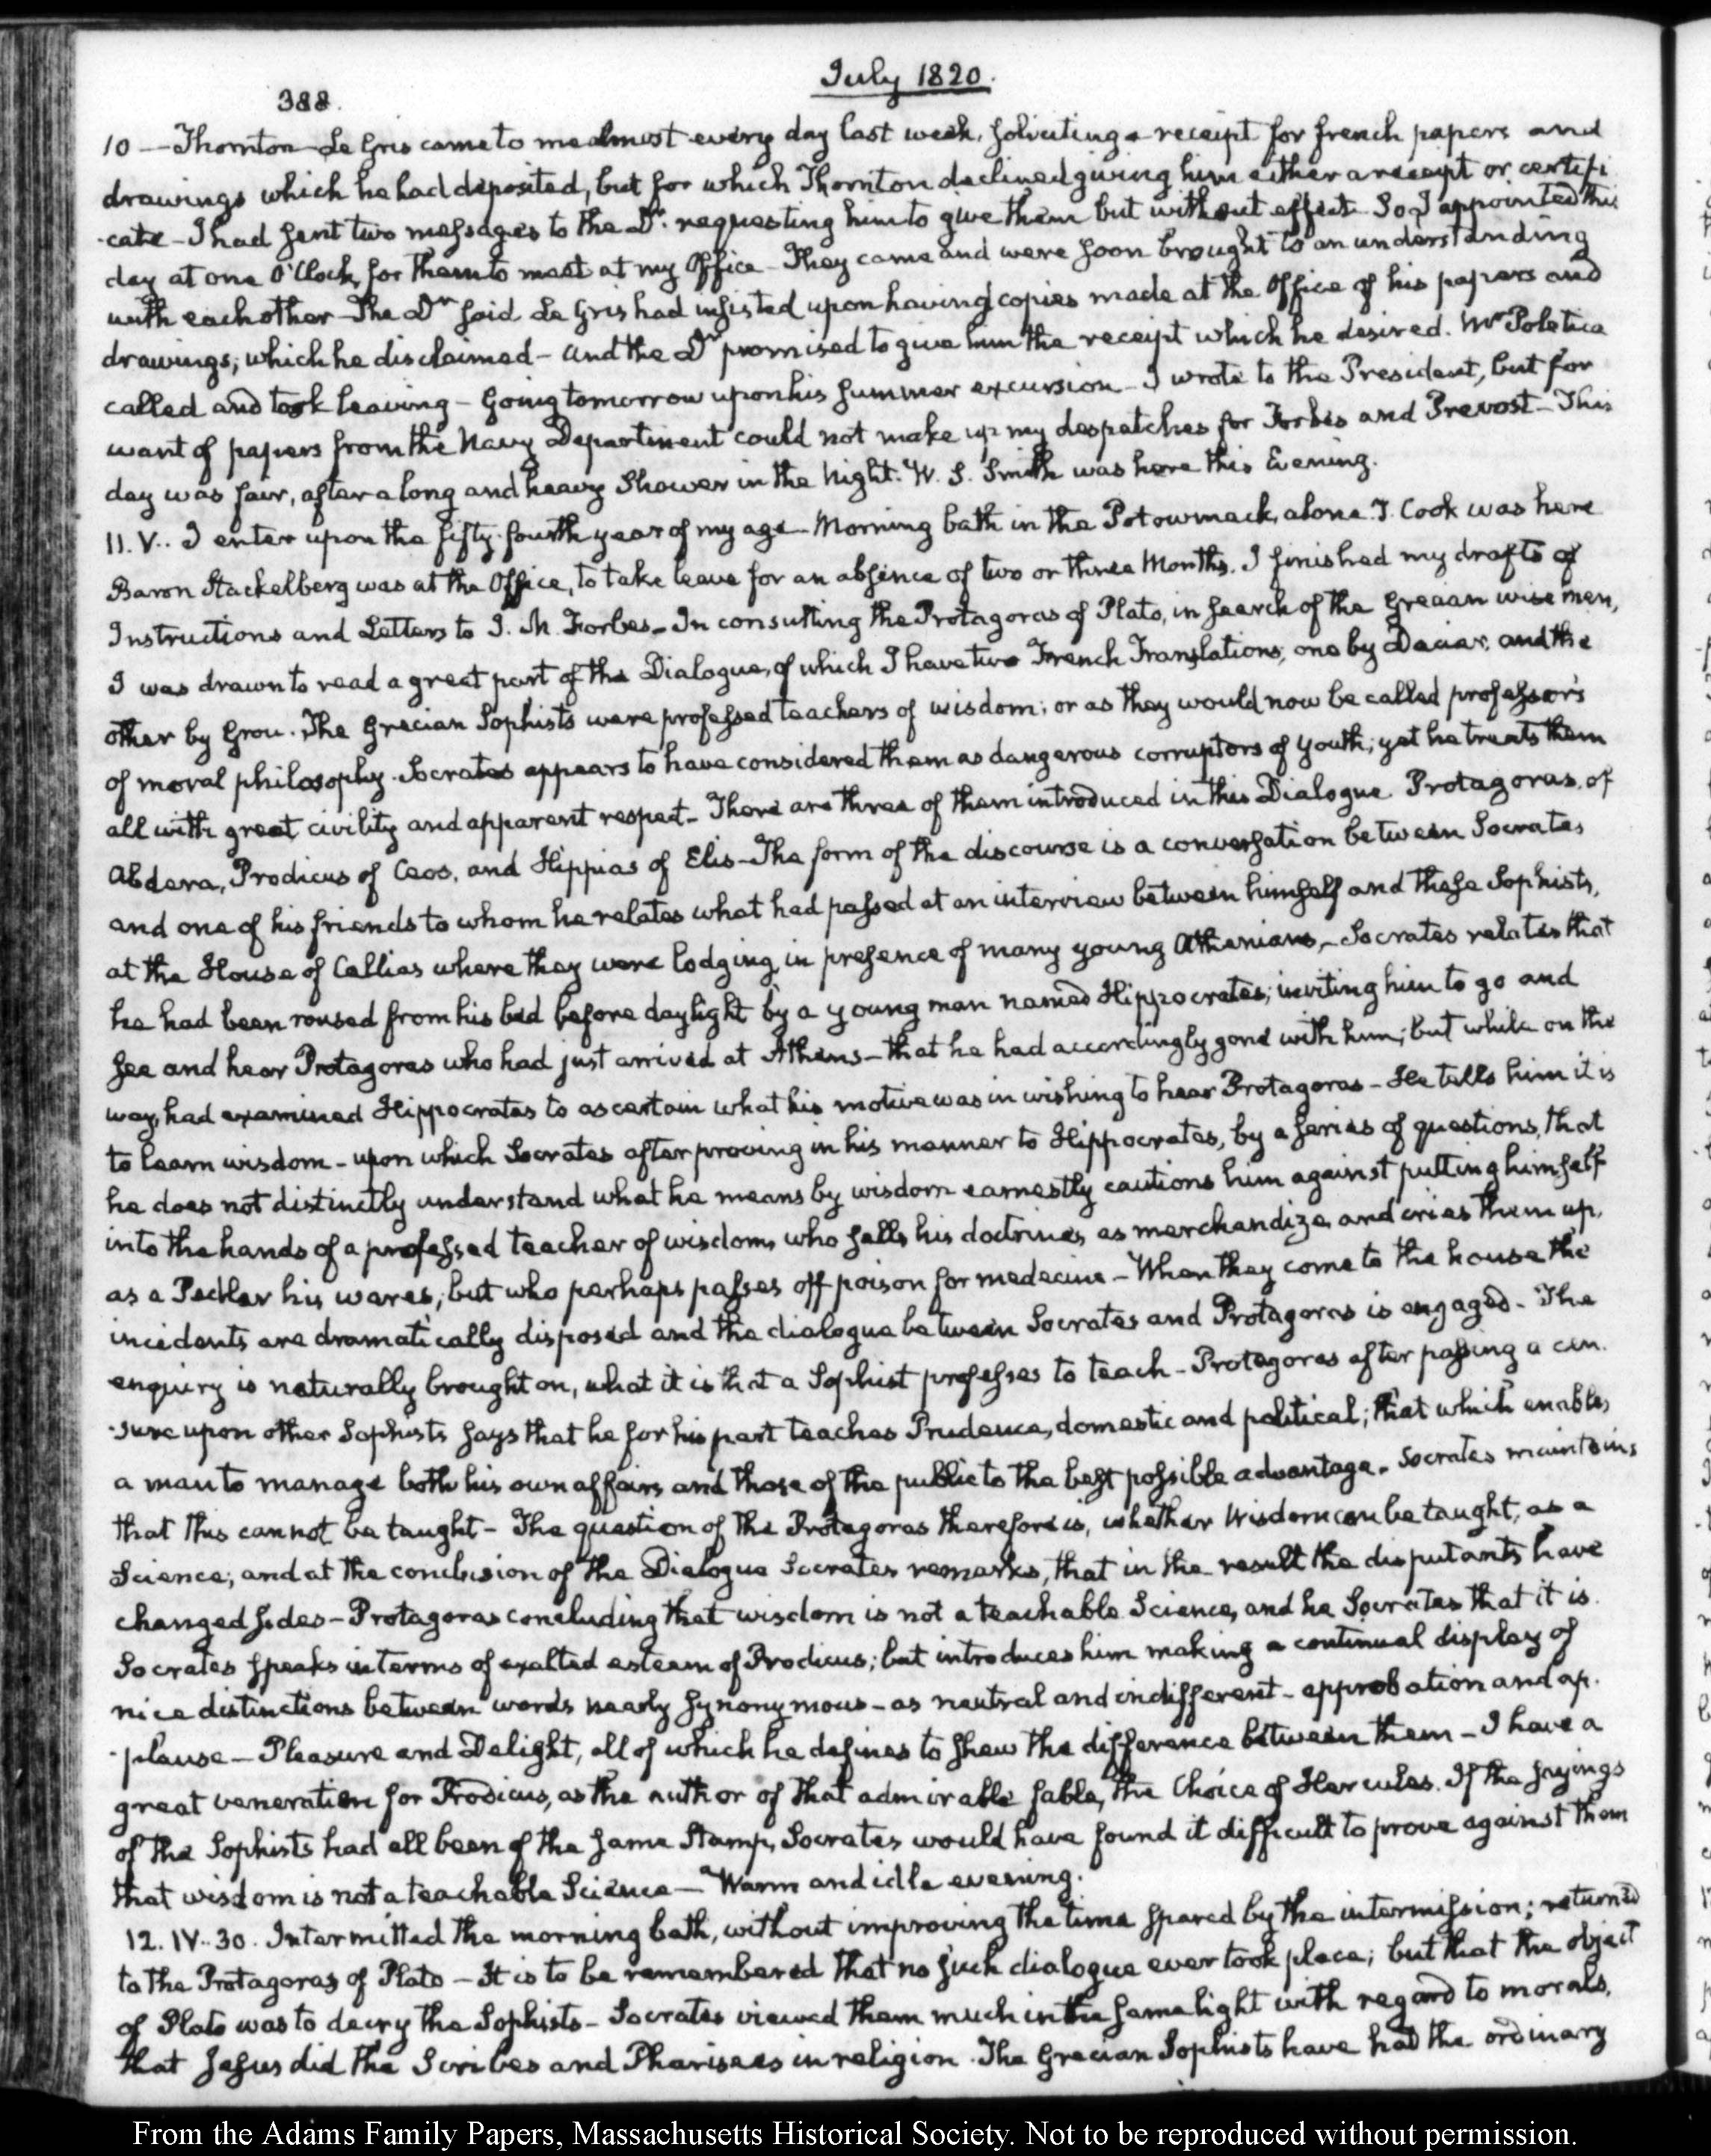 July 1820.
388.
10 — Thornton — Le Gris came to me almost every day last week, soliciting a receipt for french papers and
drawings which he had deposited, but for which Thornton declined giving him either a receipt or certifi
-cate — I had sent two messages to the Dr. requesting him to give them but without effect — So I appointed this
day at one O'Clock, for them to meet at my Office — They came and were soon brought to an understanding
with each other — The Dr. said Le Gris had insisted upon having copies made at the Office of his papers and
drawings; which he disclaimed — and the Dr. promised to give him the receipt which he desired. Mr Poletica
called and took leaving — Going tomorrow upon his summer excursion — I wrote to the President, but for
want of papers from the Navy Department could not make up my despatches for Forbes and Prevost — This
day was fair, after a long and heavy Shower in the Night. W. S. Smith was here this Evening.
11. V.. I enter upon the fifty-fourth year of my age — Morning bath in the Potowmack, alone. J. Cook was here
Baron Stackelberg was at the Office, to take leave for an absence of two or three Months. I finished my drafts of
Instructions and Letters to J. M. Forbes — In consulting the Protagoras of Plato, in search of the Grecian wise men,
I was drawn to read a great part of the Dialogue, of which I have two French Translations, one by Dacier, and the
other by Grou. The Grecian Sophists were professed teachers of wisdom; or as they would now be called professors
of moral philosophy. Socrates appears to have considered them as dangerous corruptors of Youth; yet he treats them
all with great civility and apparent respect — There are three of them introduced in this Dialogue. Protagoras, of
Abdera, Prodicus of Ceos, and Hippias of Elis — The form of the discourse is a conversation between Socrates
and one of his friends to whom he relates what had passed at an interview between himself and these Sophists,
at the House of Callias where they were lodging, in presence of many young Athenians, — Socrates relates that
he had been roused from his bed before daylight by a young man named Hippocrates, inviting him to go and
see and hear Protagoras who had just arrived at Athens — that he had accordingly gone with him; but while on the
way, had examined Hippocrates to ascertain what his motive was in wishing to hear Protagoras — He tells him it is
to learn wisdom — upon which Socrates after proving in his manner to Hippocrates, by a series of questions, that
he does not distinctly understand what he means by wisdom earnestly cautions him against putting himself
into the hands of a professed teacher of wisdom, who sells his doctrines, as merchandize, and cries them up,
as a Pedlar his wares; but who perhaps passes off poison for medecine — When they come to the house the
incidents are dramatically disposed and the dialogue between Socrates and Protagoras is engaged — The
enquiry is naturally brought on, what it is that a Sophist professes to teach — Protagoras after passing a cen-
-sure upon other Sophists says that he for his part teaches Prudence, domestic and political; that which enables
a man to manage both his own affairs and those of the public to the best possible advantage. Socrates maintains
that this cannot be taught — The question of the Protagoras therefore is, whether Wisdom can be taught, as a
Science; and at the conclusion of the Dialogue Socrates remarks, that in the result the disputants have
changed sides — Protagoras concluding that wisdom is not a teachable Science, and he Socrates that it is.
Socrates speaks in terms of exalted esteem of Prodicus; but introduces him making a continual display of
nice distinctions between words nearly synonymous — as neutral and indifferent — approbation and ap-
-plause — Pleasure and Delight, all of which he defines to shew the difference between them — I have a
great veneration for Prodicus, as the author of that admirable fable, the Choice of Hercules. If the sayings
of the Sophists had all been of the same Stamp, Socrates would have found it difficult to prove against them
that wisdom is not a teachable Science — Warm and idle evening.
12. IV.. 30. Intermitted the morning bath, without improving the time spared by the intermission; returned
to the Protagoras of Plato — It is to be remembered that no such dialogue ever took place; but that the object
of Plato was to decry the Sophists — Socrates viewed them much in the same light with regard to morals,
that Jesus did the Scribes and Pharisees in religion. The Grecian Sophists have had the ordinary
From the Adams Family Papers, Massachusetts Historical Society. Not to be reproduced without permission.